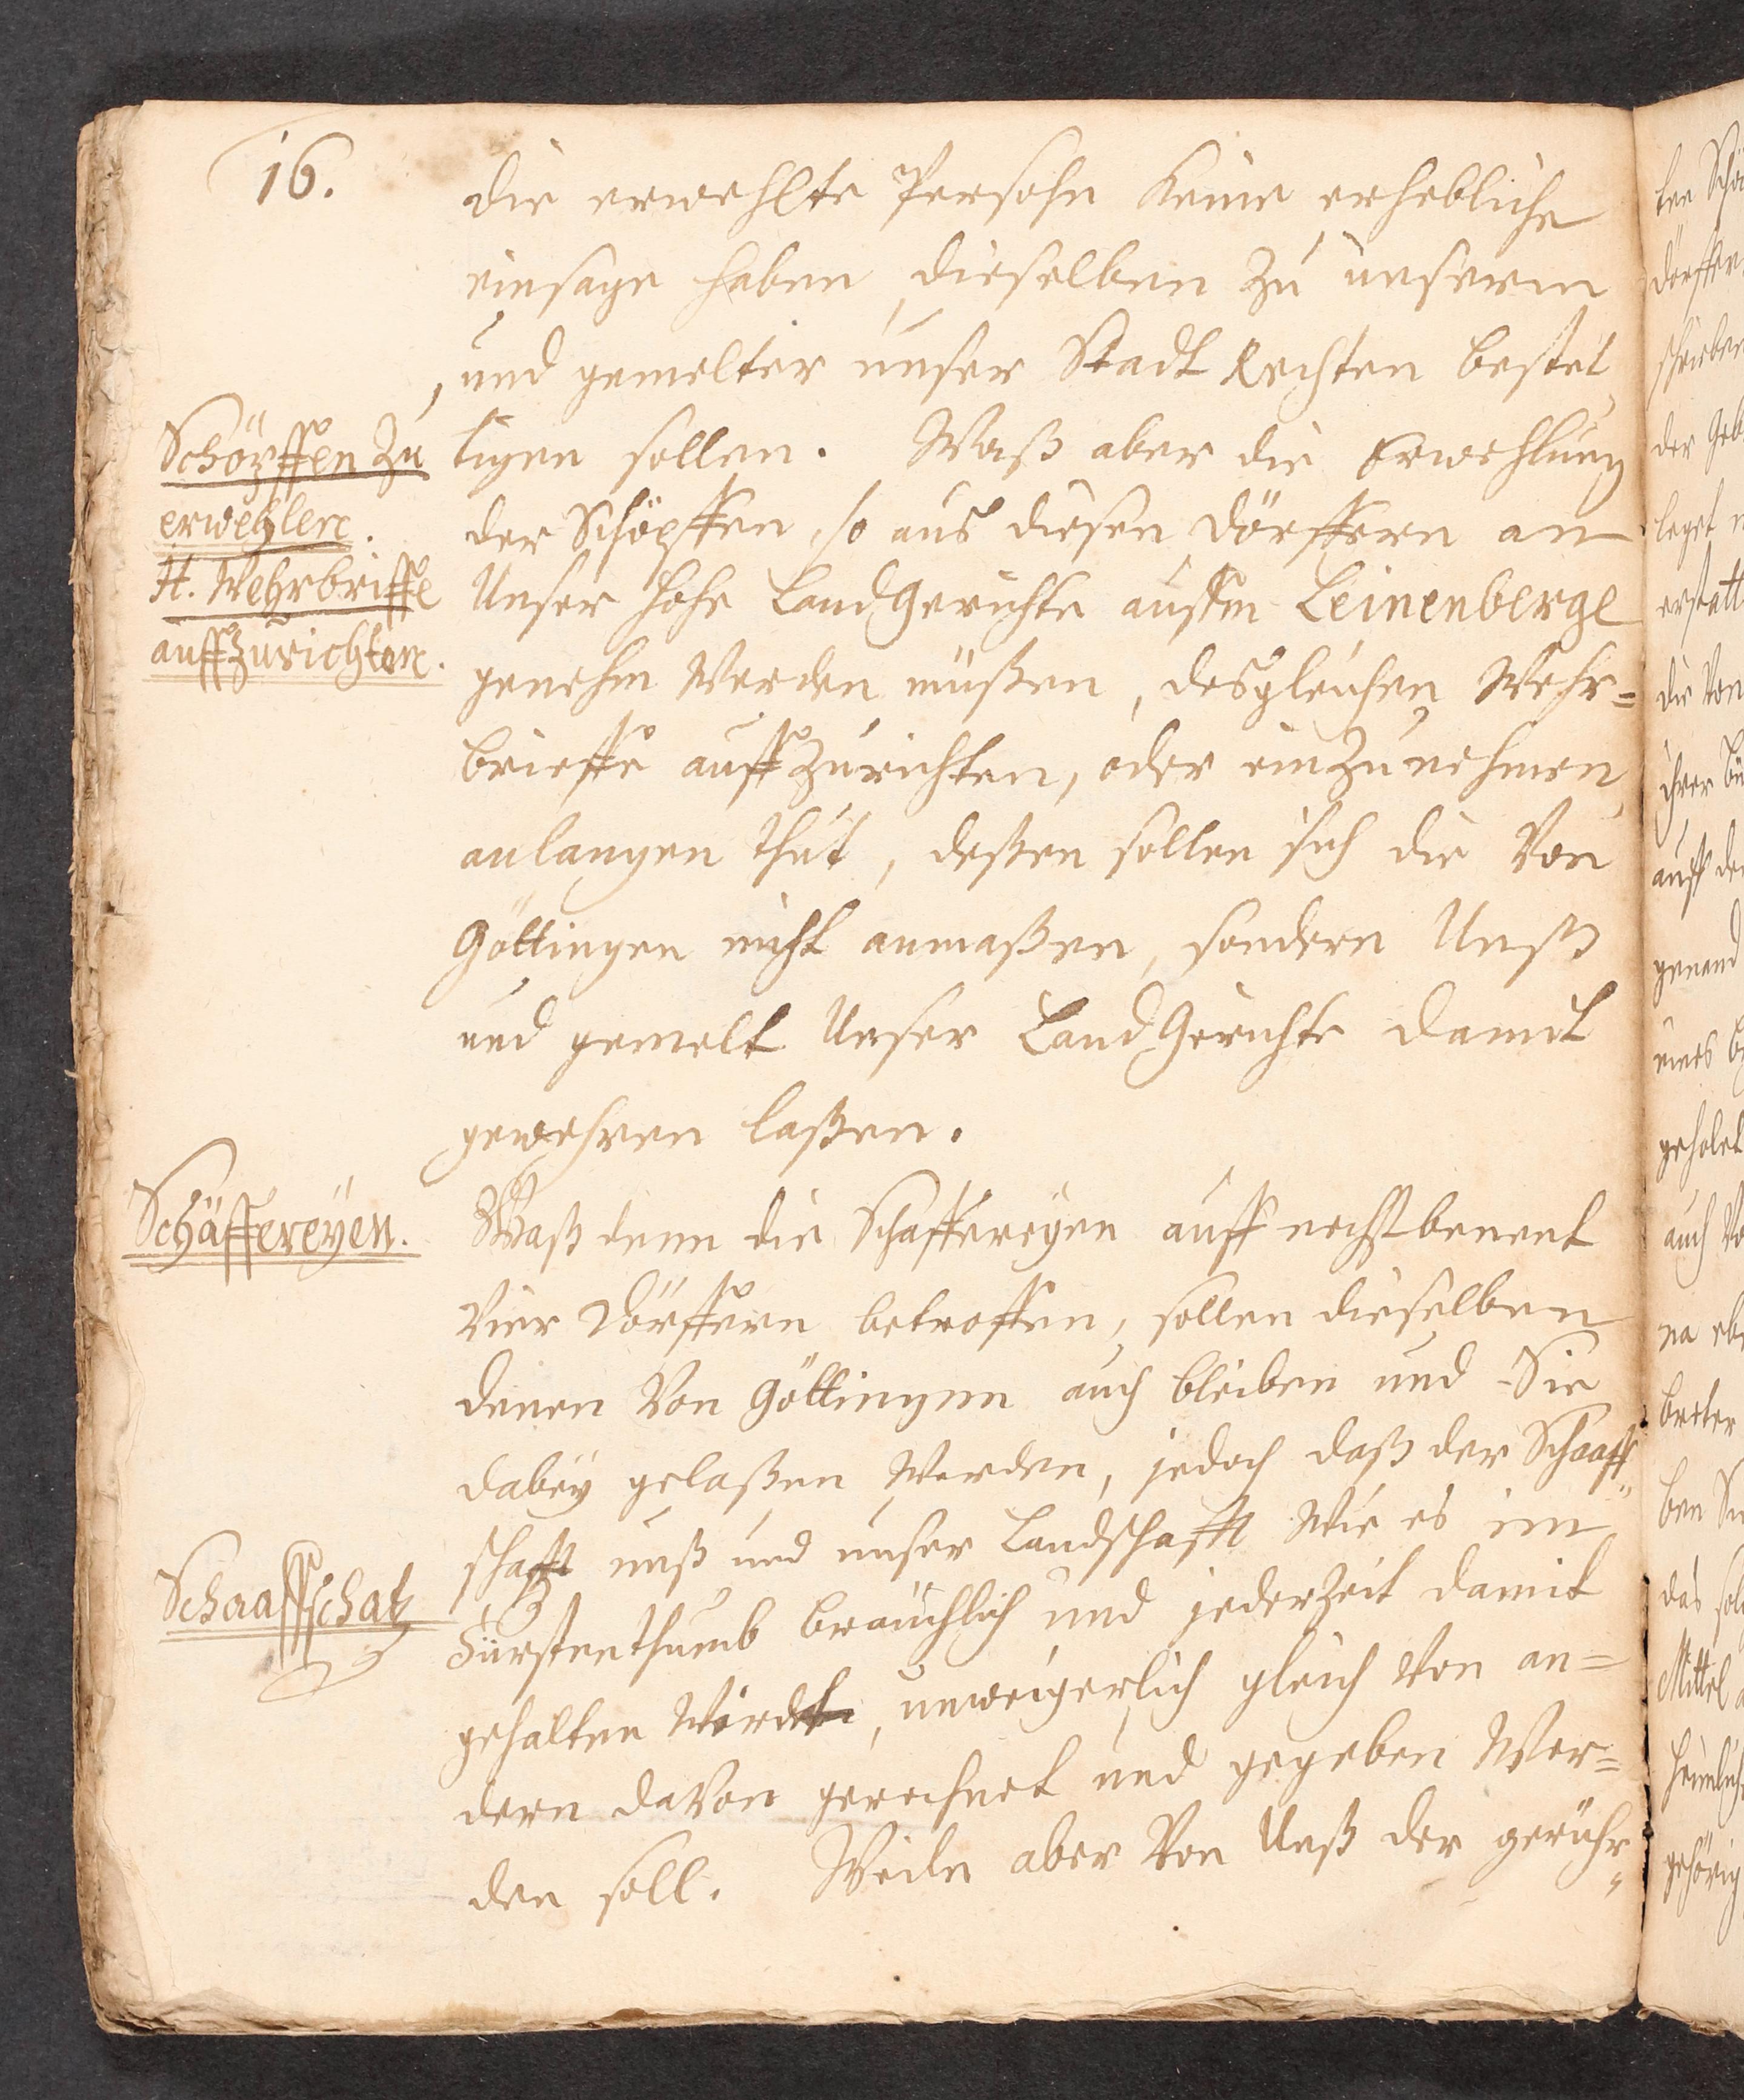 16.
die erwehlte Persohn keine erhebliche
einsage haben, dieselben zu unserm
und gemelter unser Stadt Rechten bestet
tigen sollen. Waß aber die Erwehlung
der Schöpffen, so aus diesen Dörffern an
Unser hohe LandGerichte auffm Leinenberge
genehm Werden müßen, desgleichen Wehr=
brieffe auffzurichten, oder einzunehmen
anlangen thut, deßen sollen sich die Von
Göttingen nicht anmaßen, sondern Unß
und gemelt Unser LandGerichte damit
gewehren laßen.
Waß denn die Schaffereyen auff nechstbenent
Vier Dörffern betroffen, sollen dieselben
denen Von Göttingen auch bleiben und Sie
dabey gelaßen Werden, jedoch daß der Schaaff
schafft unß und unser Landschafft Wie es im
Fürstenthumb breuchlich und jederzeit damit
gehalten Wird, unweigerlich gleich Von an=
dern daVon gerechnet und gegeben Wer=
den soll. Weiln aber Von Unß der gerühr
Schöpffen zu
erwehlen.
It. Wehrbriffe
auffzurichten.
Schäffereyen.
Schaaffschatz